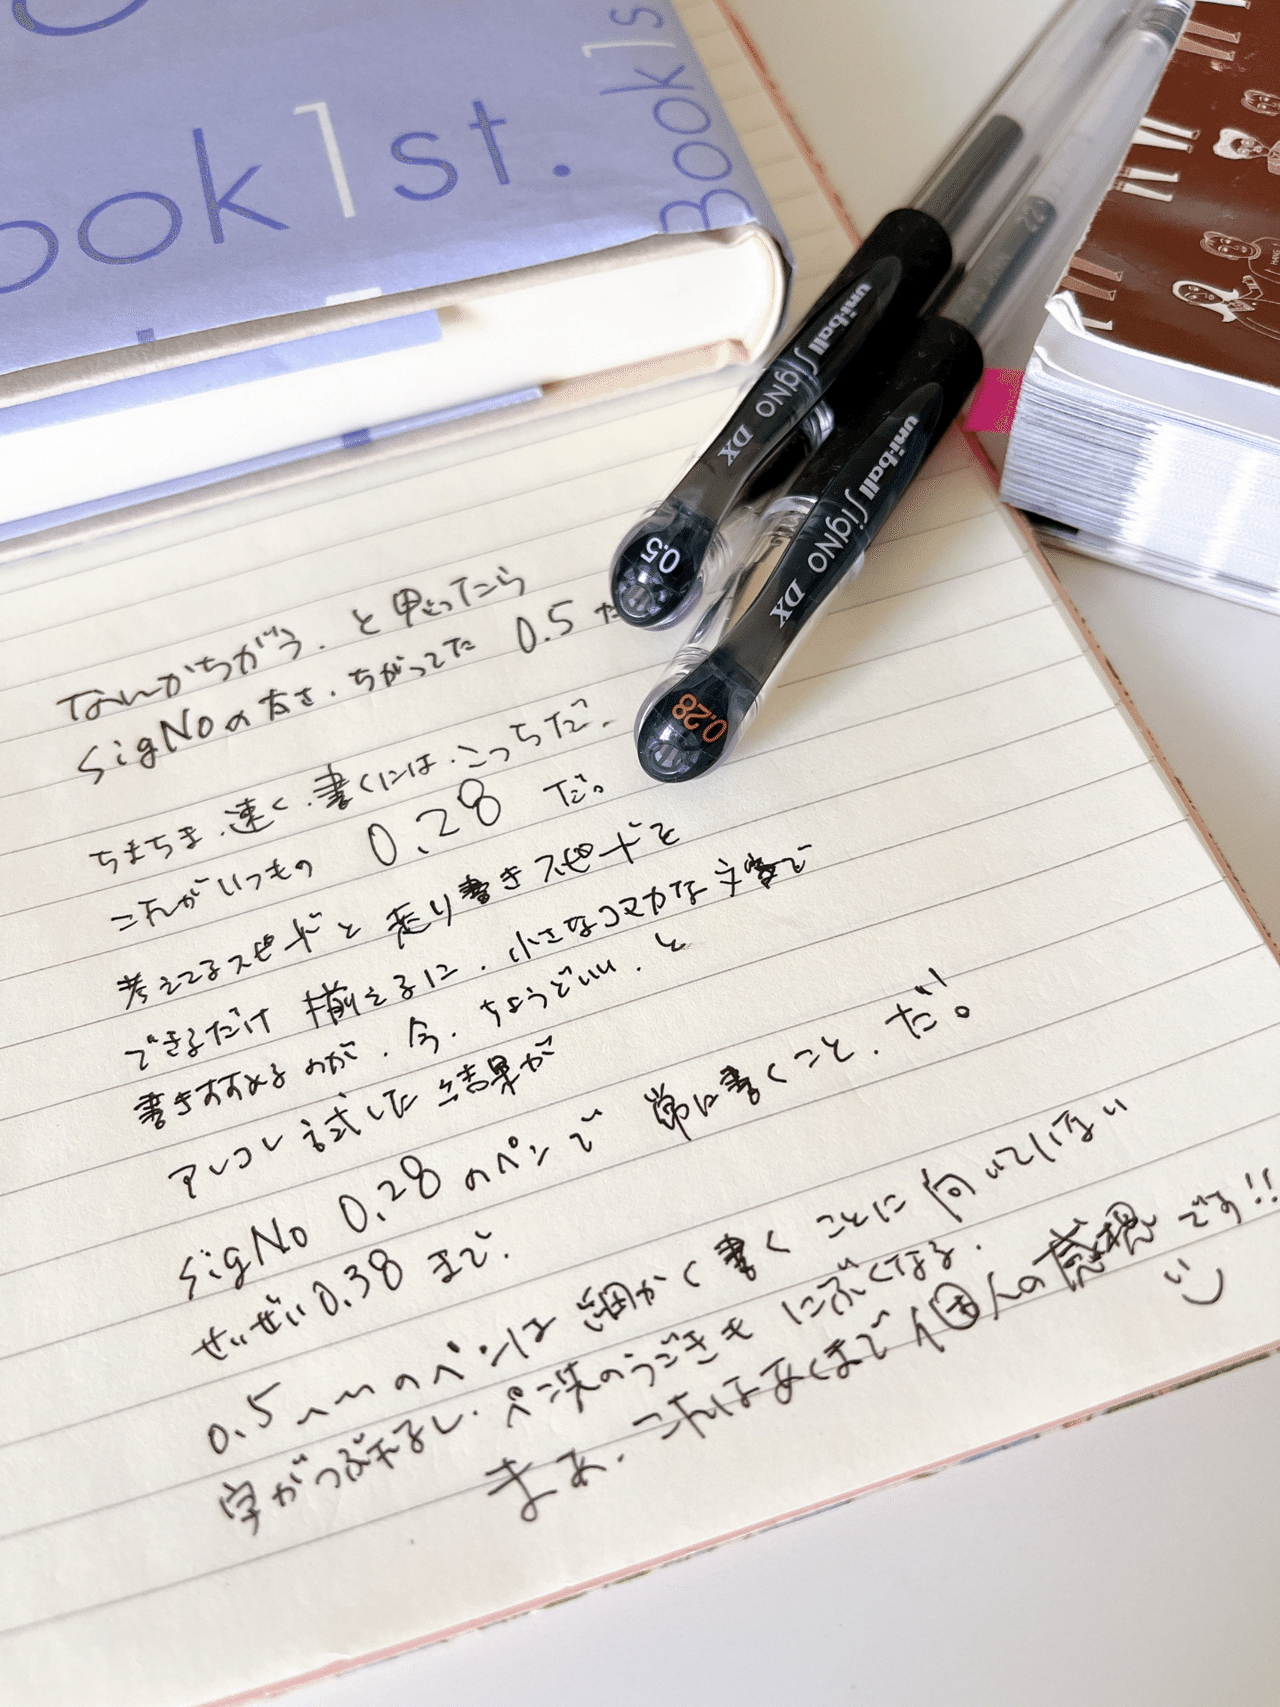 Book1st.
ook1st.
uni-ball SigNO DX
0.5
uni-ball SigNO DX
0.28
なんかちがう.と思ってたら
SigNoの太さ.ちがってた 0.5 だ
ちまちま.速く.書くには.こっちだ.
これがいつもの 0.28 だ。
考えてるスピードと走り書きスピードを
できるだけ揃えるに.小さなコマカな文字で
書きすすめるのが.今.ちょうどいい.と
アレコレ試した結果が
SigNo 0.28のペンで常に書くこと.だ!。
せいぜい0.38まで.
0.5mmのペンは細かく書くことに向いていない
字がつぶれるし.ペン先のうごきもにぶくなる.
まぁ.これはあくまで個人の感想です!!